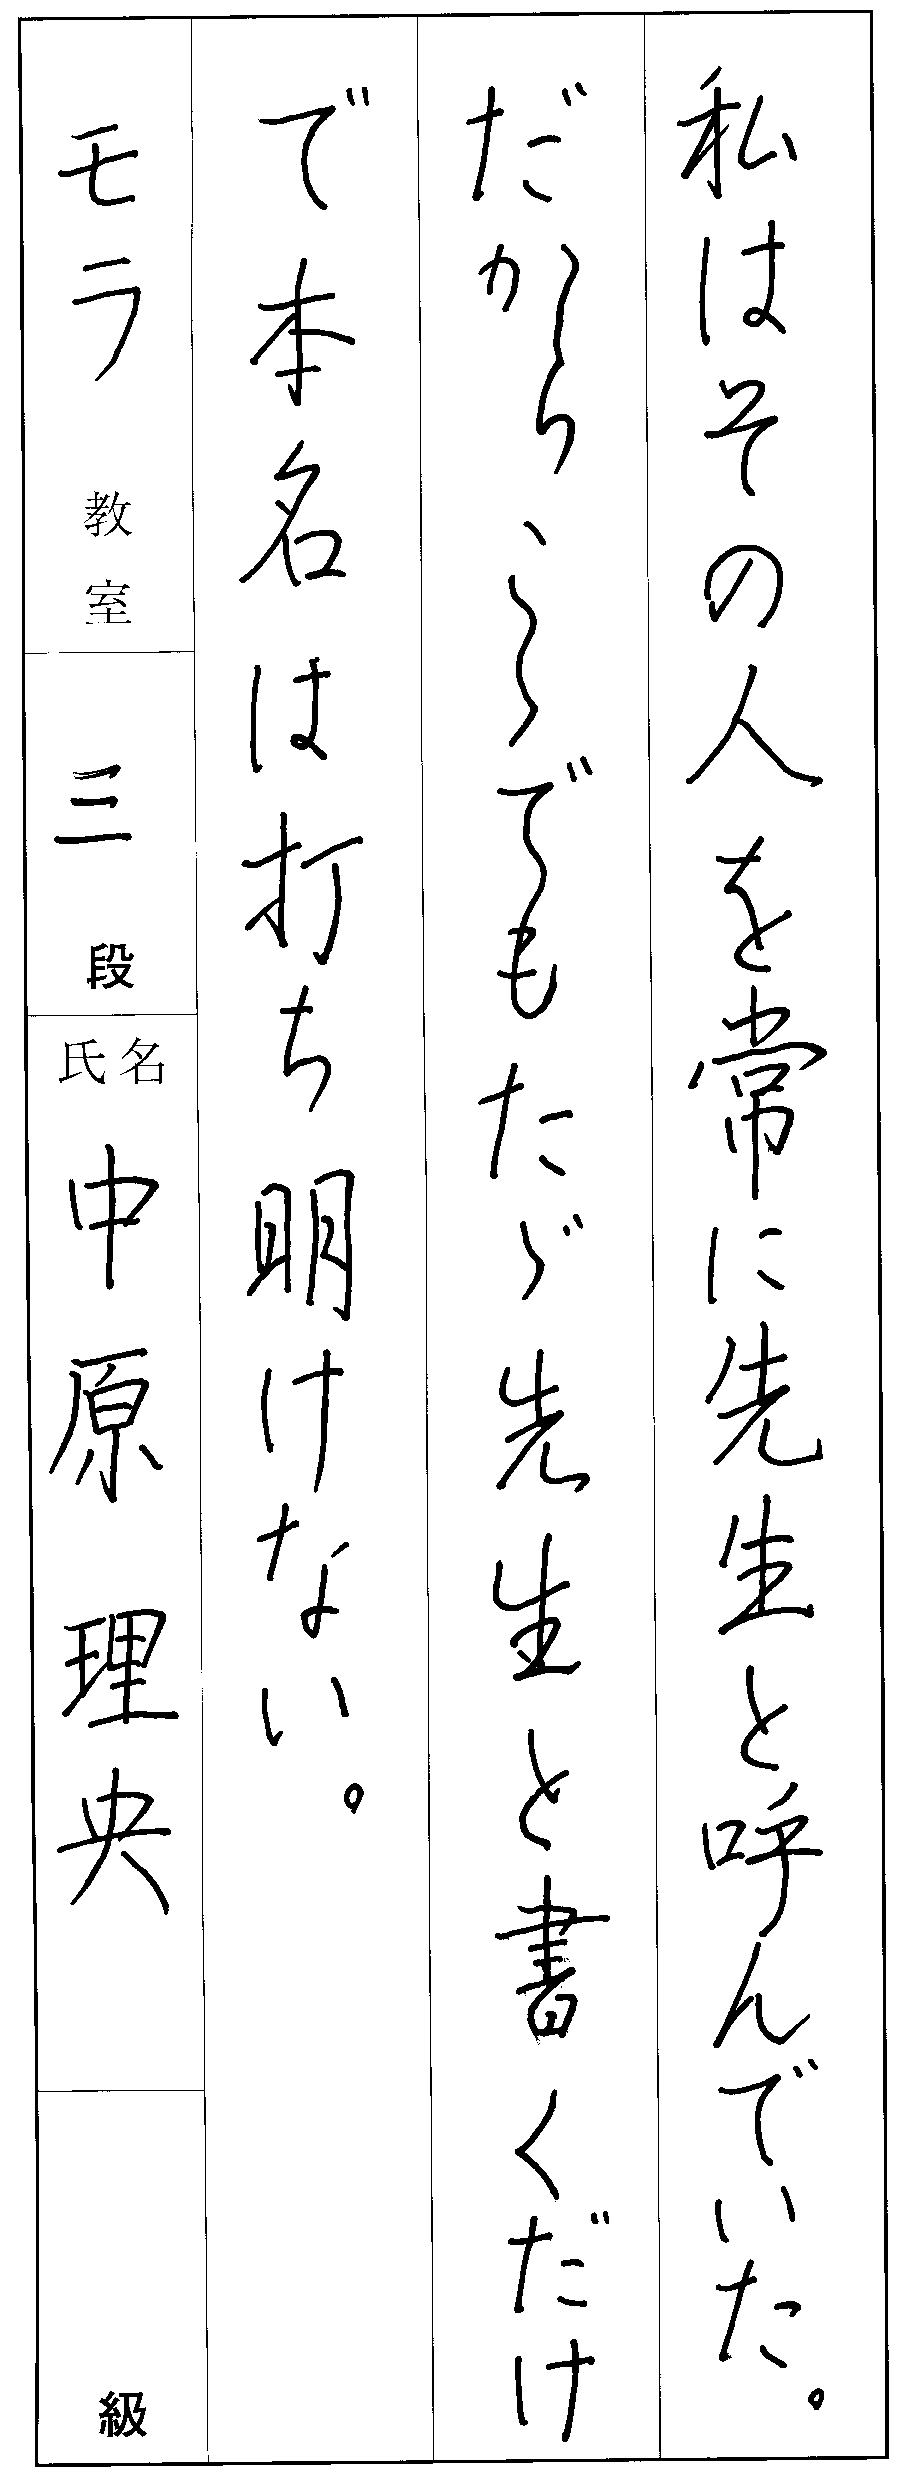 私はその人を常に先生と呼んでいた。
だからこゝでもたゞ先生と書くだけ
で本名は打ち明けない。
モラ教室
三段
氏名 中原理央
級